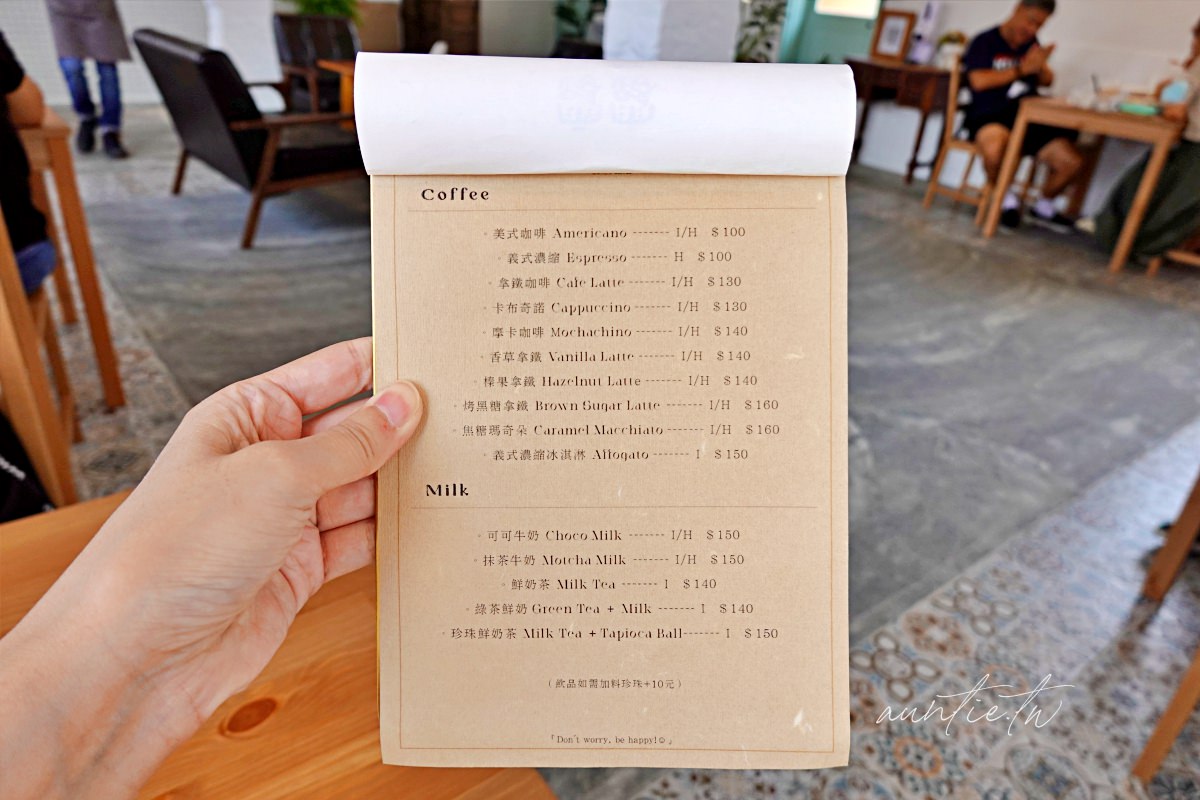 Coffee
◦ 美式咖啡 Americano ------- I/H $100
◦ 義式濃縮 Espresso ------- H $100
◦ 拿鐵咖啡 Cafe Latte ------- I/H $130
◦ 卡布奇諾 Cappuccino ------- I/H $130
◦ 摩卡咖啡 Mochachino ------- I/H $140
◦ 香草拿鐵 Vanilla Latte ------- I/H $140
◦ 榛果拿鐵 Hazelnut Latte ------- I/H $140
◦ 烤黑糖拿鐵 Brown Sugar Latte ------- I/H $160
◦ 焦糖瑪奇朵 Caramel Macchiato ------- I/H $160
◦ 義式濃縮冰淇淋 Affogato ------- I $150
Milk
◦ 可可牛奶 Choco Milk ------- I/H $150
◦ 抹茶牛奶 Motcha Milk ------- I/H $150
◦ 鮮奶茶 Milk Tea ------- I $140
◦ 綠茶鮮奶 Green Tea + Milk ------- I $140
◦ 珍珠鮮奶茶 Milk Tea + Tapioca Ball------- I $150
(飲品如需加料珍珠+10元)
「Don't worry, be happy!☺」
auntie.tw